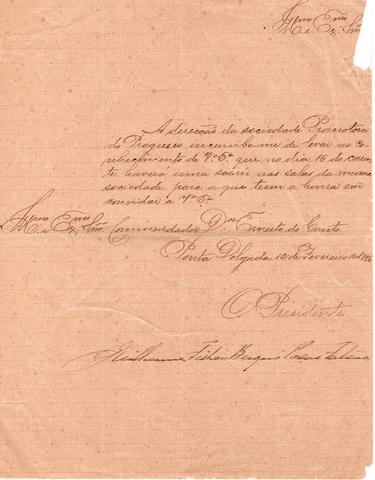 Illmo e Exmo Snr
A direcção da sociedade Promotora
do Progresso incumbe-me de levar ao co-
nhecimento de Vª Exª que no dia 16 de corren-
te havera uma soirée nas salas da mesma
sociedade, para a que tem a honra em
convidar a Vª Exª
Illmo e Exmo Snr Commendador Dor Ernesto do Canto
Ponta Delgada 12 de Fevereiro de
O Presidente
Guilherme Fisher Berquó Poças Falcão